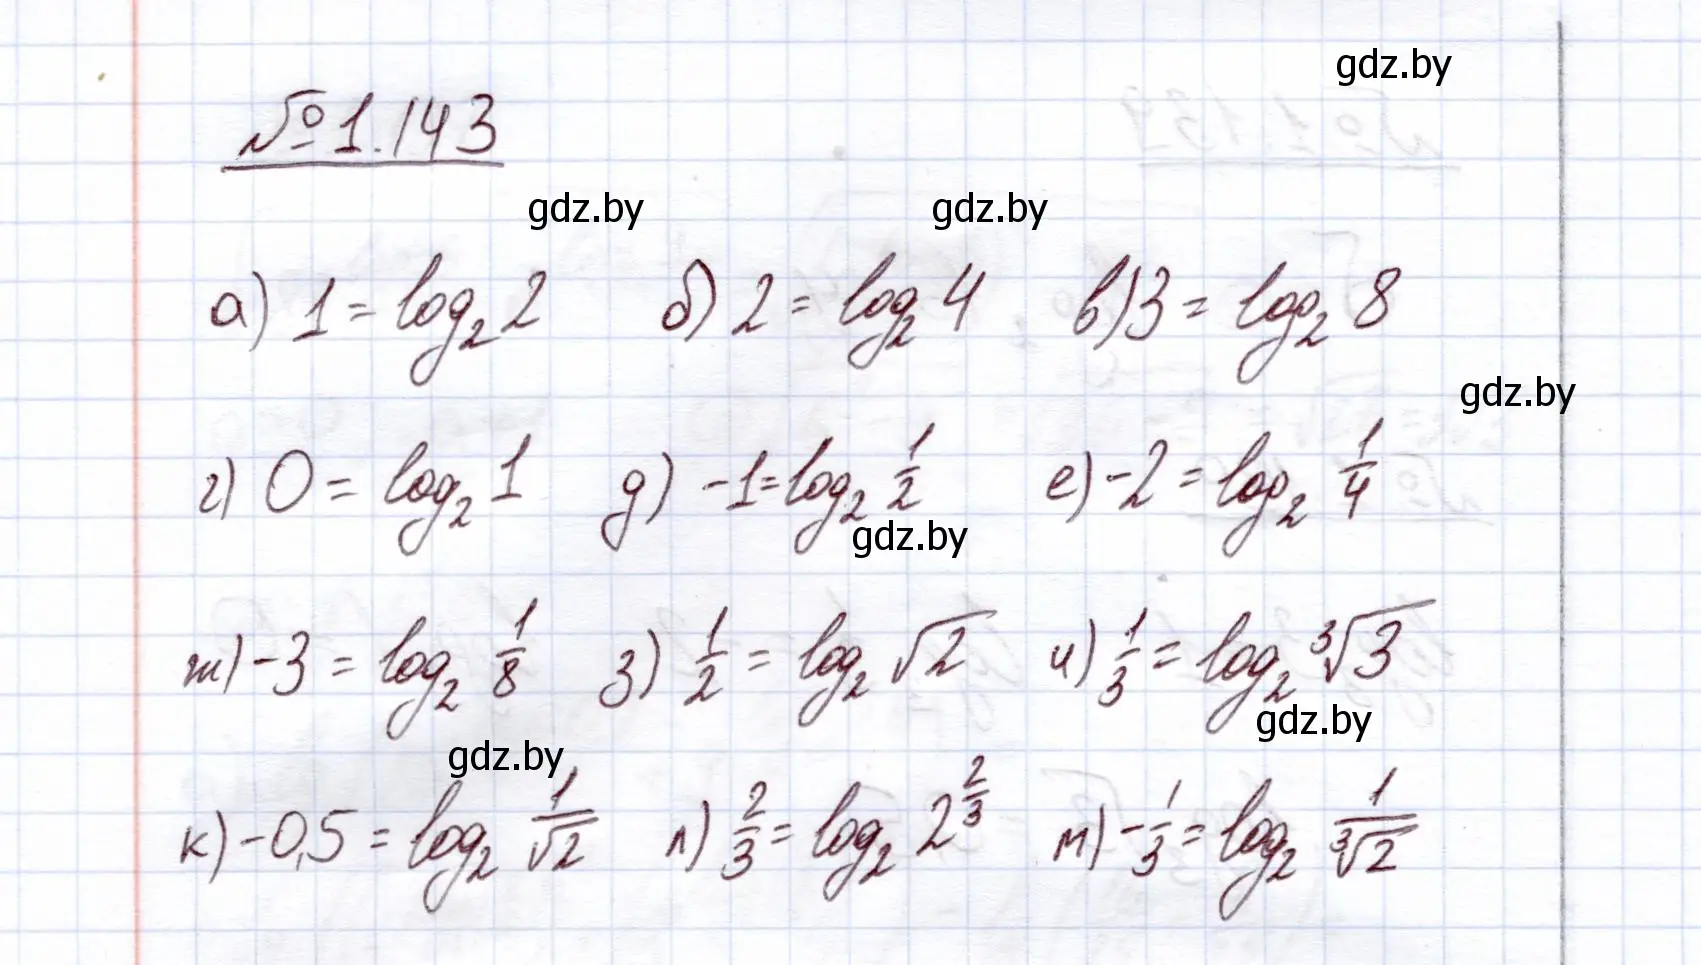 gdz.by
№ 1.143
gdz.by gdz.by
а) 1 = log₂ 2 б) 2 = log₂ 4 в) 3 = log₂ 8
gdz.by
г) 0 = log₂ 1 д) -1 = log₂ 1/2 е) -2 = log₂ 1/4
gdz.by
ж) -3 = log₂ 1/8 з) 1/2 = log₂ √2 и) 1/3 = log₂ ∛3
gdz.by
gdz.by
к) -0,5 = log₂ 1/√2 л) 2/3 = log₂ 2^(2/3) м) -1/3 = log₂ 1/∛2